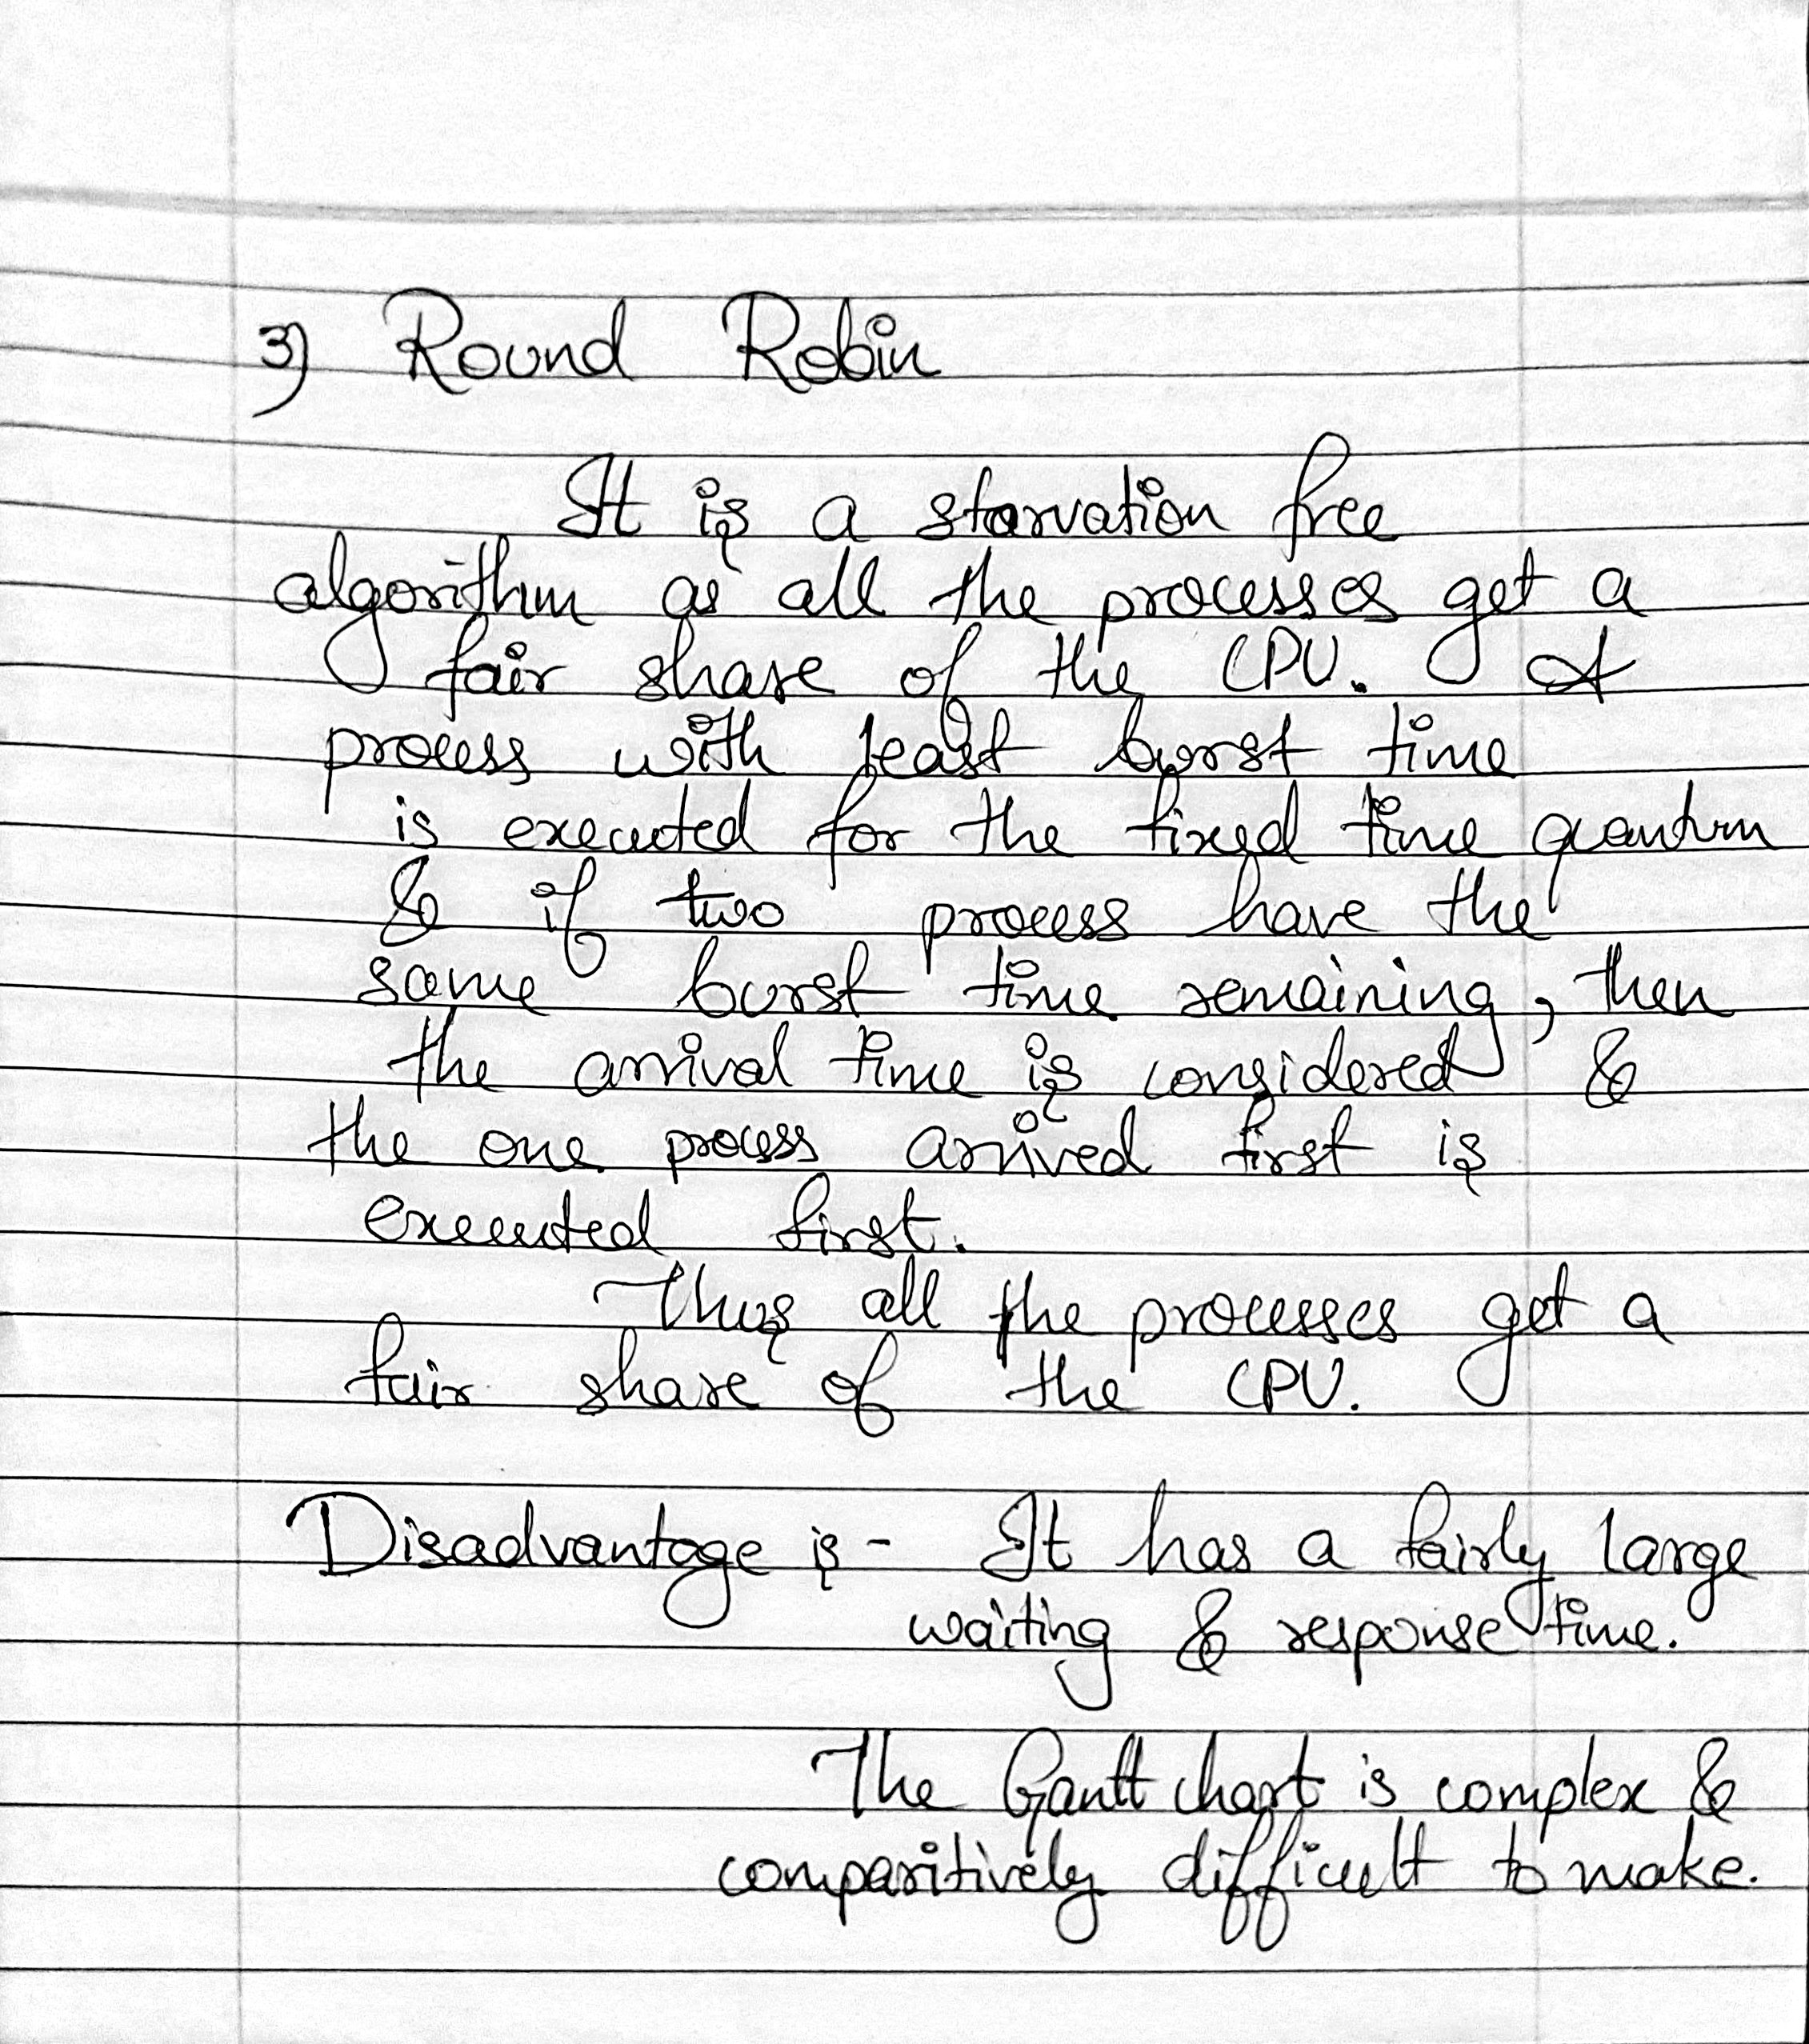 3) Round Robin
It is a starvation free
algorithm as all the processes get a
fair share of the CPU. A
process with least burst time
is executed for the fixed time quantum
& if two process have the
same burst time remaining, then
the arrival time is considered &
the one process arrived first is
executed first.
Thus all the processes get a
fair share of the CPU.
Disadvantage is - It has a fairly large
waiting & response time.
The Gantt chart is complex &
comparitively difficult to make.